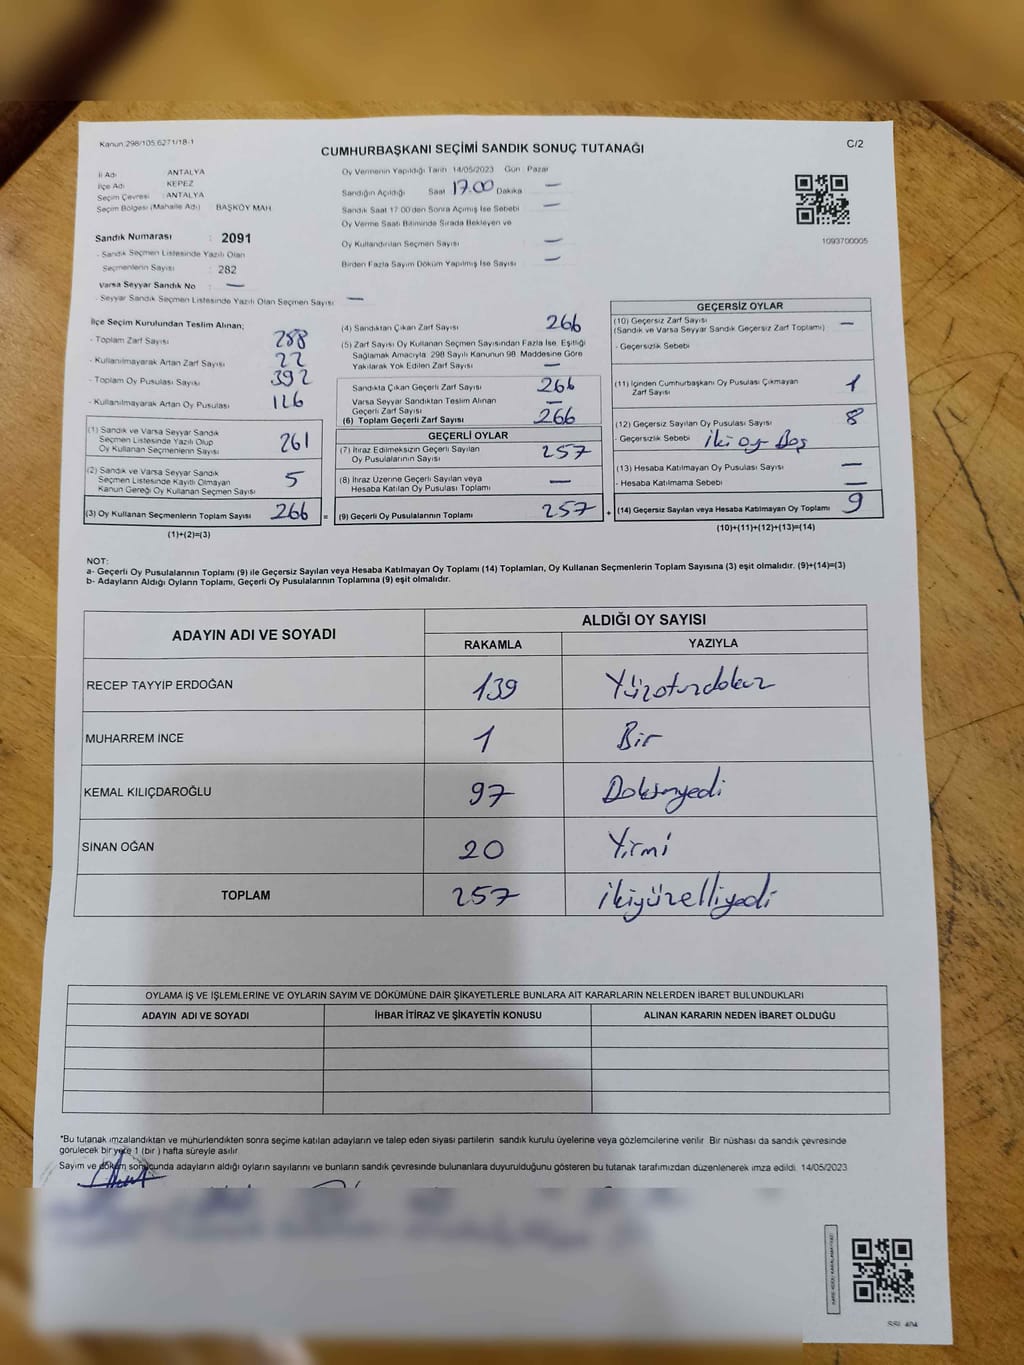 Kanun:298/105,6271/18-1
CUMHURBAŞKANI SEÇİMİ SANDIK SONUÇ TUTANAĞI
C/2
İl Adı ANTALYA
İlçe Adı KEPEZ
Seçim Çevresi : ANTALYA
Seçim Bölgesi (Mahalle Adı) BAŞKÖY MAH.
Sandık Numarası : 2091
- Sandık Seçmen Listesinde Yazılı Olan
Seçmenlerin Sayısı : 282
Varsa Seyyar Sandık No —
- Seyyar Sandık Seçmen Listesinde Yazılı Olan Seçmen Sayısı —
Oy Vermenin Yapıldığı Tarih 14/05/2023 Gün : Pazar
Sandığın Açıldığı Saat 17.00 Dakika —
Sandık Saat 17:00'den Sonra Açılmış İse Sebebi —
Oy Verme Saati Bitiminde Sırada Bekleyen ve
Oy Kullandırılan Seçmen Sayısı —
Birden Fazla Sayım Döküm Yapılmış İse Sayısı —
1093700005
İlçe Seçim Kurulundan Teslim Alınan;
- Toplam Zarf Sayısı 288
- Kullanılmayarak Artan Zarf Sayısı 22
- Toplam Oy Pusulası Sayısı 392
- Kullanılmayarak Artan Oy Pusulası 126
(1) Sandık ve Varsa Seyyar Sandık
Seçmen Listesinde Yazılı Olup
Oy Kullanan Seçmenlerin Sayısı 261
(2) Sandık ve Varsa Seyyar Sandık
Seçmen Listesinde Kayıtlı Olmayan
Kanun Gereği Oy Kullanan Seçmen Sayısı 5
(3) Oy Kullanan Seçmenlerin Toplam Sayısı 266 =
(1)+(2)=(3)
(4) Sandıktan Çıkan Zarf Sayısı 266
(5) Zarf Sayısı Oy Kullanan Seçmen Sayısından Fazla İse, Eşitliği
Sağlamak Amacıyla 298 Sayılı Kanunun 98. Maddesine Göre
Yakılarak Yok Edilen Zarf Sayısı —
Sandıkta Çıkan Geçerli Zarf Sayısı 266
Varsa Seyyar Sandıktan Teslim Alınan
Geçerli Zarf Sayısı —
(6) Toplam Geçerli Zarf Sayısı 266
GEÇERLİ OYLAR
(7) İtiraz Edilmeksizin Geçerli Sayılan
Oy Pusulalarının Sayısı 257
(8) İtiraz Üzerine Geçerli Sayılan veya
Hesaba Katılan Oy Pusulası Toplamı —
(9) Geçerli Oy Pusulalarının Toplamı 257 +
GEÇERSİZ OYLAR
(10) Geçersiz Zarf Sayısı
(Sandık ve Varsa Seyyar Sandık Geçersiz Zarf Toplamı) —
- Geçersizlik Sebebi
(11) İçinden Cumhurbaşkanı Oy Pusulası Çıkmayan
Zarf Sayısı 1
(12) Geçersiz Sayılan Oy Pusulası Sayısı 8
- Geçersizlik Sebebi iki oy Boş
(13) Hesaba Katılmayan Oy Pusulası Sayısı —
- Hesaba Katılmama Sebebi —
(14) Geçersiz Sayılan veya Hesaba Katılmayan Oy Toplamı 9
(10)+(11)+(12)+(13)=(14)
NOT:
a- Geçerli Oy Pusulalarının Toplamı (9) ile Geçersiz Sayılan veya Hesaba Katılmayan Oy Toplamı (14) Toplamları, Oy Kullanan Seçmenlerin Toplam Sayısına (3) eşit olmalıdır. (9)+(14)=(3)
b- Adayların Aldığı Oyların Toplamı, Geçerli Oy Pusulalarının Toplamına (9) eşit olmalıdır.
ADAYIN ADI VE SOYADI ALDIĞI OY SAYISI
RAKAMLA YAZIYLA
RECEP TAYYİP ERDOĞAN 139 Yüzotuzdokuz
MUHARREM İNCE 1 Bir
KEMAL KILIÇDAROĞLU 97 Doksanyedi
SİNAN OĞAN 20 Yirmi
TOPLAM 257 ikiyüzelliyedi
OYLAMA İŞ VE İŞLEMLERİNE VE OYLARIN SAYIM VE DÖKÜMÜNE DAİR ŞİKAYETLERLE BUNLARA AİT KARARLARIN NELERDEN İBARET BULUNDUKLARI
ADAYIN ADI VE SOYADI İHBAR İTİRAZ VE ŞİKAYETİN KONUSU ALINAN KARARIN NEDEN İBARET OLDUĞU
*Bu tutanak imzalandıktan ve mühürlendikten sonra seçime katılan adayların ve talep eden siyasi partilerin sandık kurulu üyelerine veya gözlemcilerine verilir. Bir nüshası da sandık çevresinde
görülecek bir yere 1 (bir) hafta süreyle asılır.
Sayım ve döküm sonucunda adayların aldığı oyların sayılarını ve bunların sandık çevresinde bulunanlara duyurulduğunu gösteren bu tutanak tarafımızdan düzenlenerek imza edildi. 14/05/2023